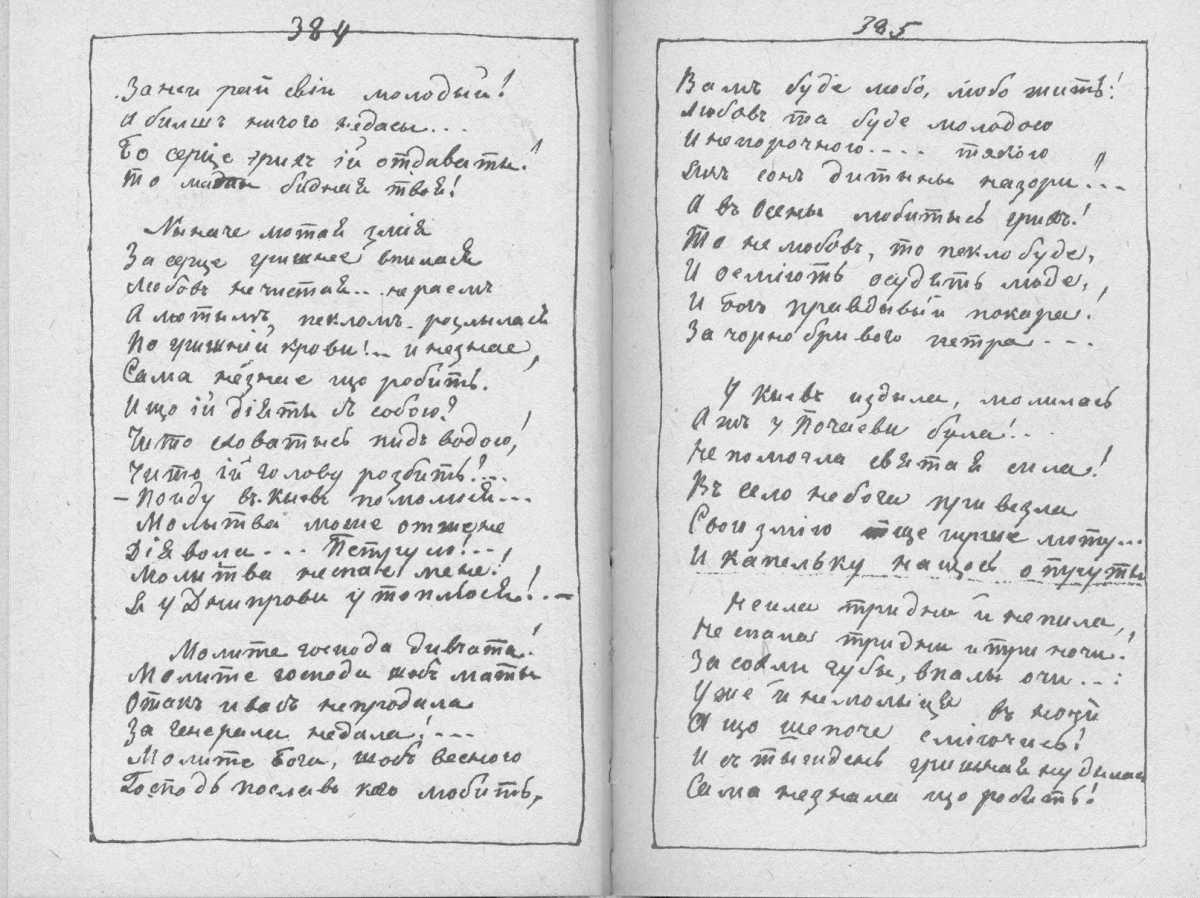 384
За неи рай свій молодый!
А билшъ ничого недасы...
Бо серце грихъ ій отдаваты!
То мати бидная твоя!
Ныначе лютая змія
За серце гришнеє впилася
Любовъ нечистая... нераемъ
А лютымъ пекломъ розлылася
По гришній крови!.. и незнає,
Сама незнає що робить.
И що ій діяты съ собою?
Чито сховатысь пидъ водою,
Чито ій голову розбить!...
— Пойду въ Кыевъ помолюся...
Молытва може отжене
Діявола... Петрусю!..,
Молитва неспасе мене!
Я у Днипрови утоплюся!. —
Молите господа дивчата!
Молите господа щобъ маты
Отакъ и васъ непродала
За Генерала недала!...
Молите Бога, щобъ весною
Господь пославъ кого любить,
385
Вамъ буде любо, любо жить!
Любовъ та буде молодою
И непорочного.... тякого
Якъ сонъ дитыны назори!...
А въ осены любитысь грихъ!
То не любовъ, то пекло буде,
И осміють осудять люде,
И Богъ правдывый покара!
За чорнобривого петра...
У Кыевъ издыла, молилась
Ажъ у Почаєви була!..
Непомогла святая сила!
Въ село небога привезла
Свою змію ще гирше люту...
И капельку нащось отруты
Неила тридни й непила,
Неспала тридни и три ночи!
Засохли губы, впалы очи...
Уже й немолыця въ ночи
А що шепоче сміючись!
И съ тыждень гришная нудылась
Сама незнала що робить!